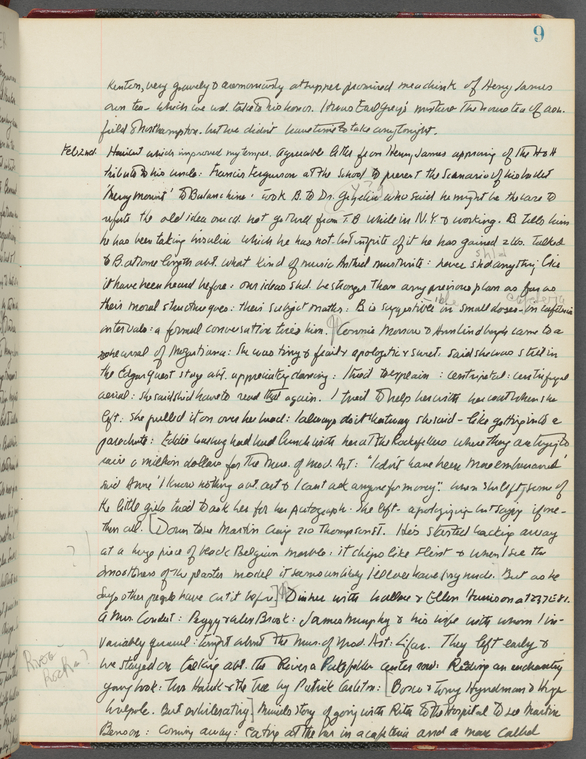 9
Kenton, very gravely & ceremoniously at supper promised me a drink of Henry James
own tea - which we wd. take to his honor. It was Earl Grey's mixture. The home tea of
field & Northampton. but we didn't have time to take any tonight.
Feb 2nd. Haircut which improved my temper. Agreeable letter from Henry James approving of the H & H
tribute to his uncle: Francis Fergusson at the School to present the Scenario of his ballet
'Merry mount' to Balanchine. Took B. to Dr. who said he might be the case to
refute the old idea one cd. not get well from T.B. while in N.Y. & working. B. tells him
he has been taking insulin which he has not. but in spite of it he has gained 2 lbs. Talked
to B. at some length abt. what kind of music Antheil must write: never shd anything like
sh/d
it have been heard before: our ideas shd. be stronger than any previous plan as far as
their moral structure goes: their subject matter: B is suggestible in small doses - on
intervals: a formal conversation tires him. Connie Morrow & Anne Lindbergh came to a
rehearsal of Mozartiana: She was tiny & frail & apologetic & sweet. Said she was still in
the Edgar Guest stage abt. appreciating dancing: I tried to explain: centripetal: centrifugal
aerial: she said she'd have to read that again. I tried to help her with her coat when she
left: she pulled it on over her head: I always do it that way she said - like getting into a
parachute: Eddie Warburg had had lunch with her at the Rockefellers where they are trying to
raise a million dollars for the Mus. of Mod. Art: "I didn't have been more embarrassed'
said Anne 'I know nothing abt. art & I can't ask anyone for money". When she left some of
the little girls tried to ask her for her autograph. She left - apologizing
them all. [Down to see Martin Craig 210 Thompson St. He's started hacking away
?
at a huge piece of black Belgium marble: it chips like flint & when I see the
smoothness of the plaster model it seems unlikely he'll ever have it made. But as he
says other people have cut it before] Dinner with Wallace & Ellen Harrison at
A Mrs. Conder: Peggy & Alex Brook: James Murphy & his wife with whom I in-
variably quarrel: tonight about the Mus. of Mod. Art: Lifar. They left early &
we stayed on talking abt. the Rivera Rockefeller Center row: Reading an enchanting
Rivera
Rock[a]?
young book: The Hawk & the Tree by Patrick: [Bosco & Tony Hyndman & Hugh
Walpole. But exhilarating] Muriel's story of going with Rita to the Hospital to see Martin
Benson: coming away: eating at the bar in a cafeteria and a man called